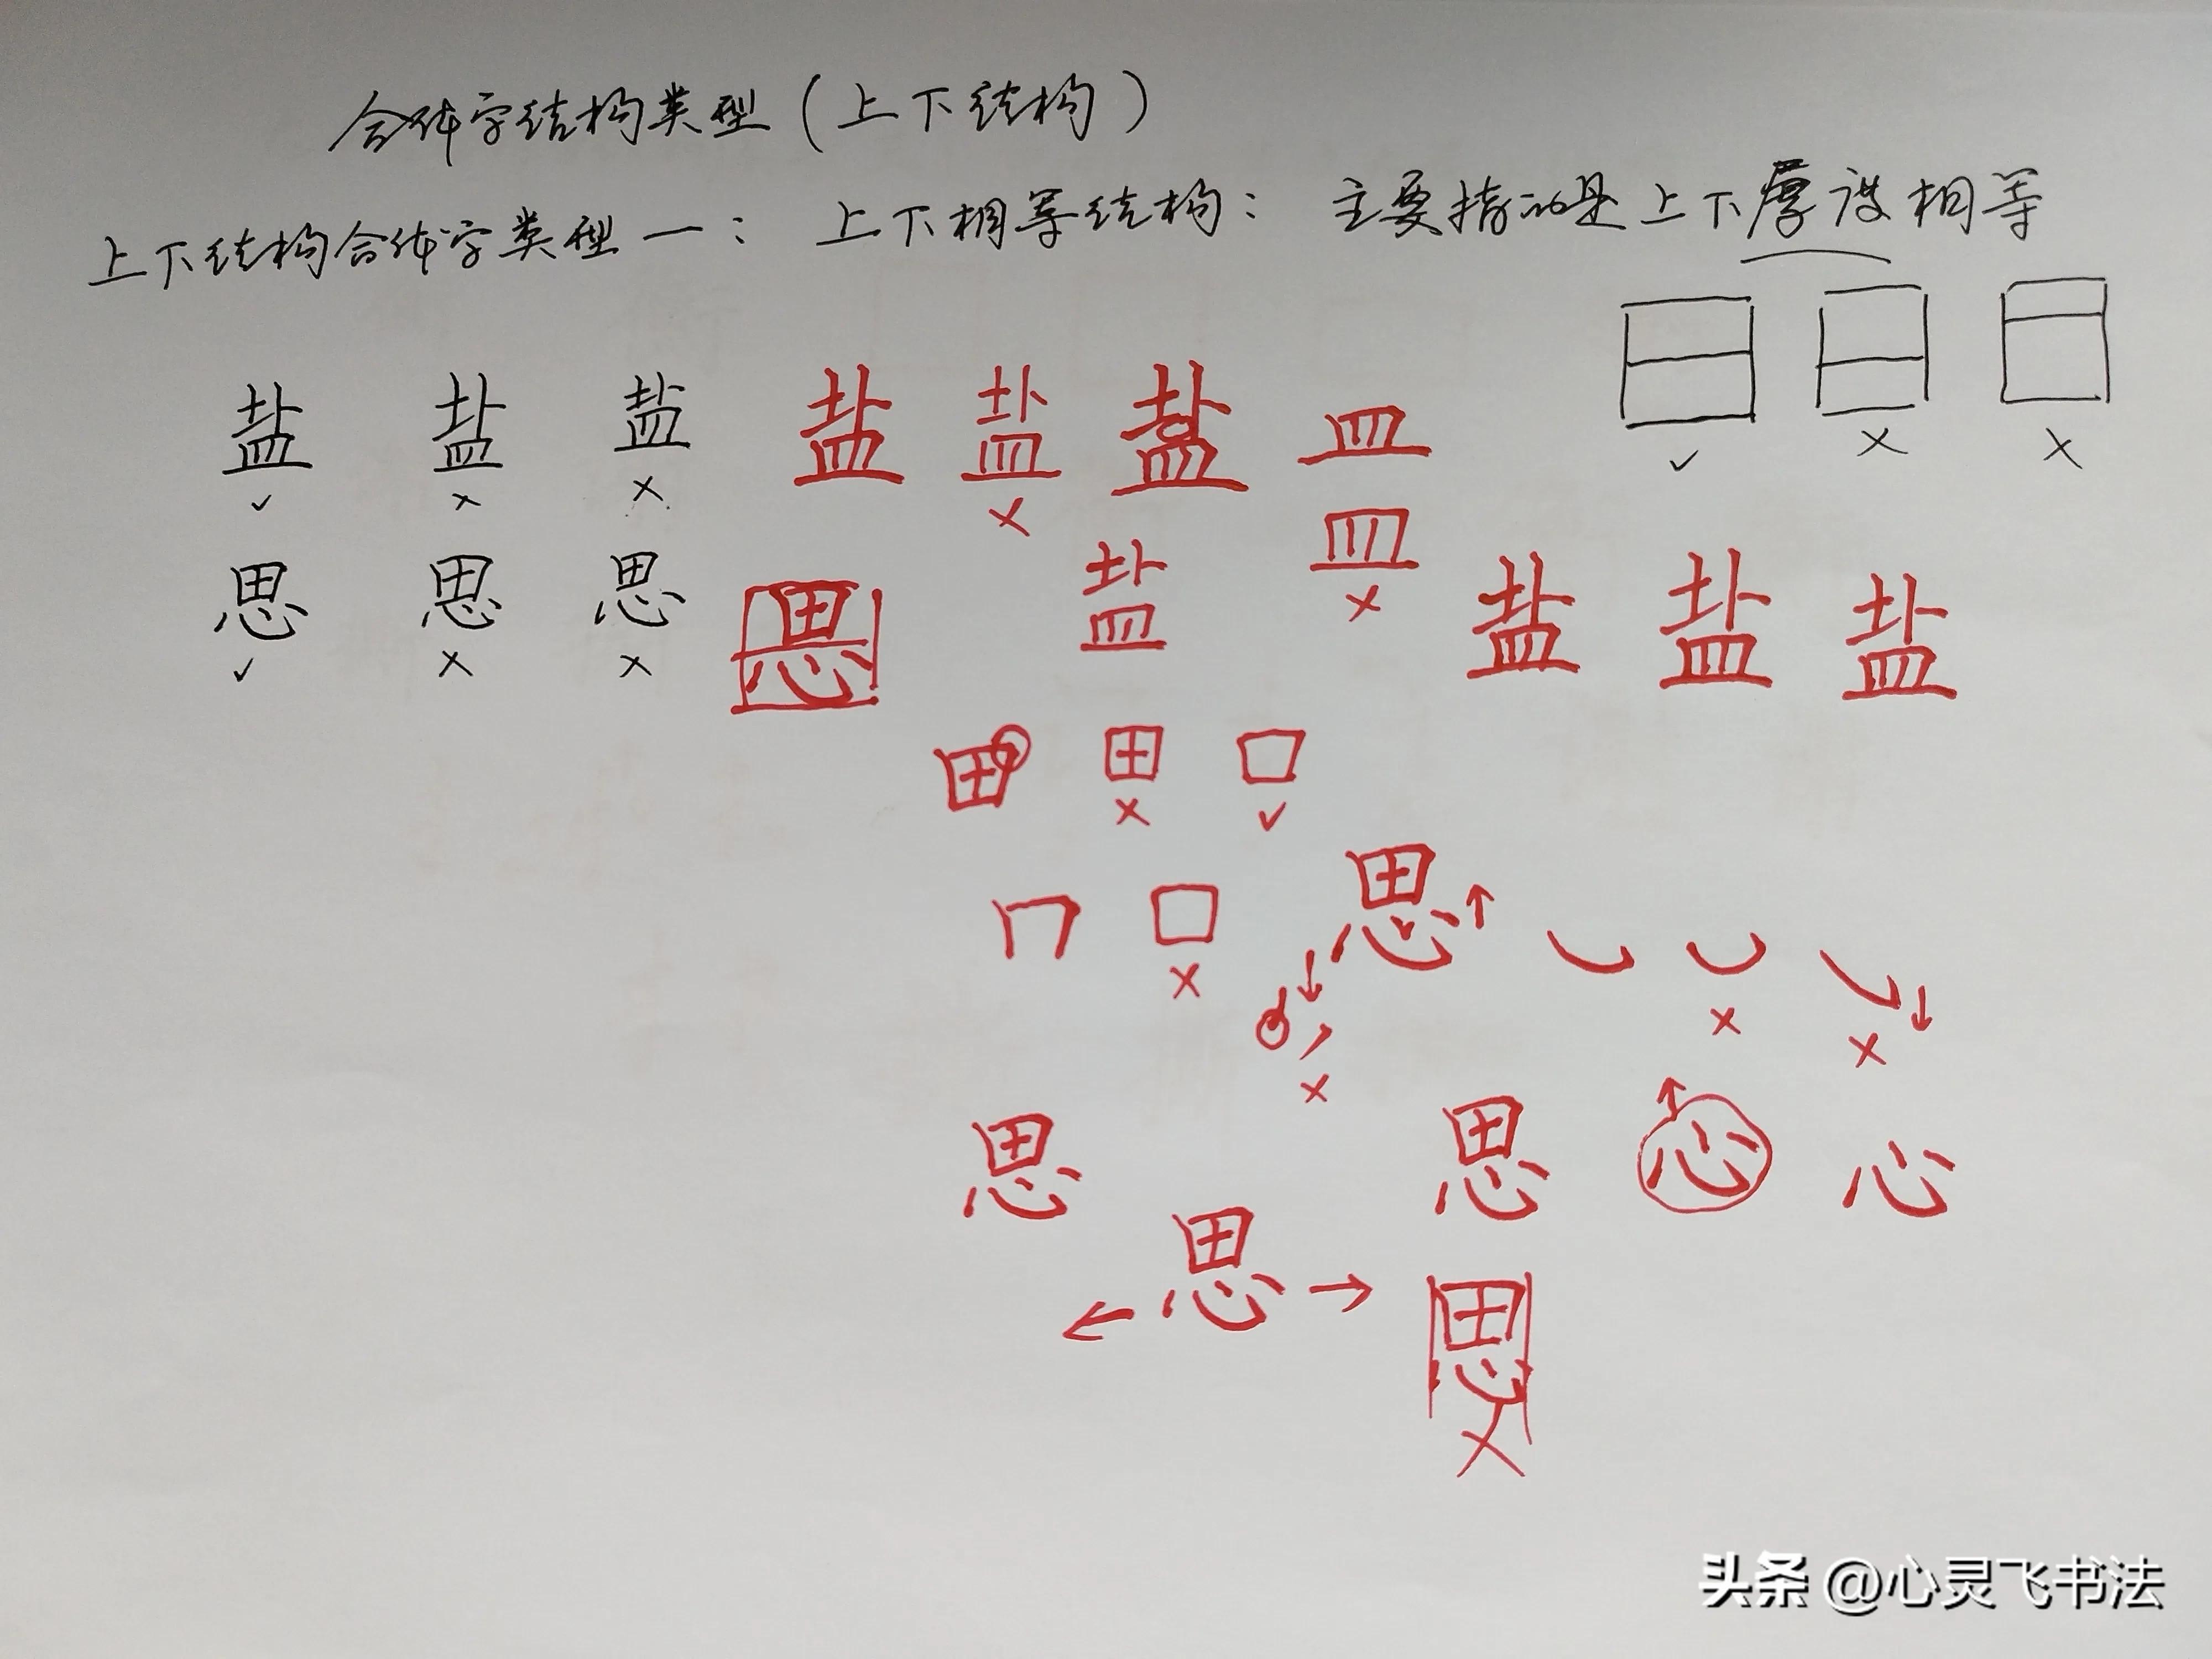 合体字结构类型(上下结构)
上下结构合体字类型一: 上下相等结构: 主要指的是上下厚度相等
盐 盐 盐 盐 盐 盐 皿
✓ × × × ✓ × ×
皿
×
思 思 思 思 盐 盐 盐 盐
✓ × ×
田 田 口
× ✓
口 思
×
× × ×
思 思 心 心
思 思
×
头条 @心灵飞书法